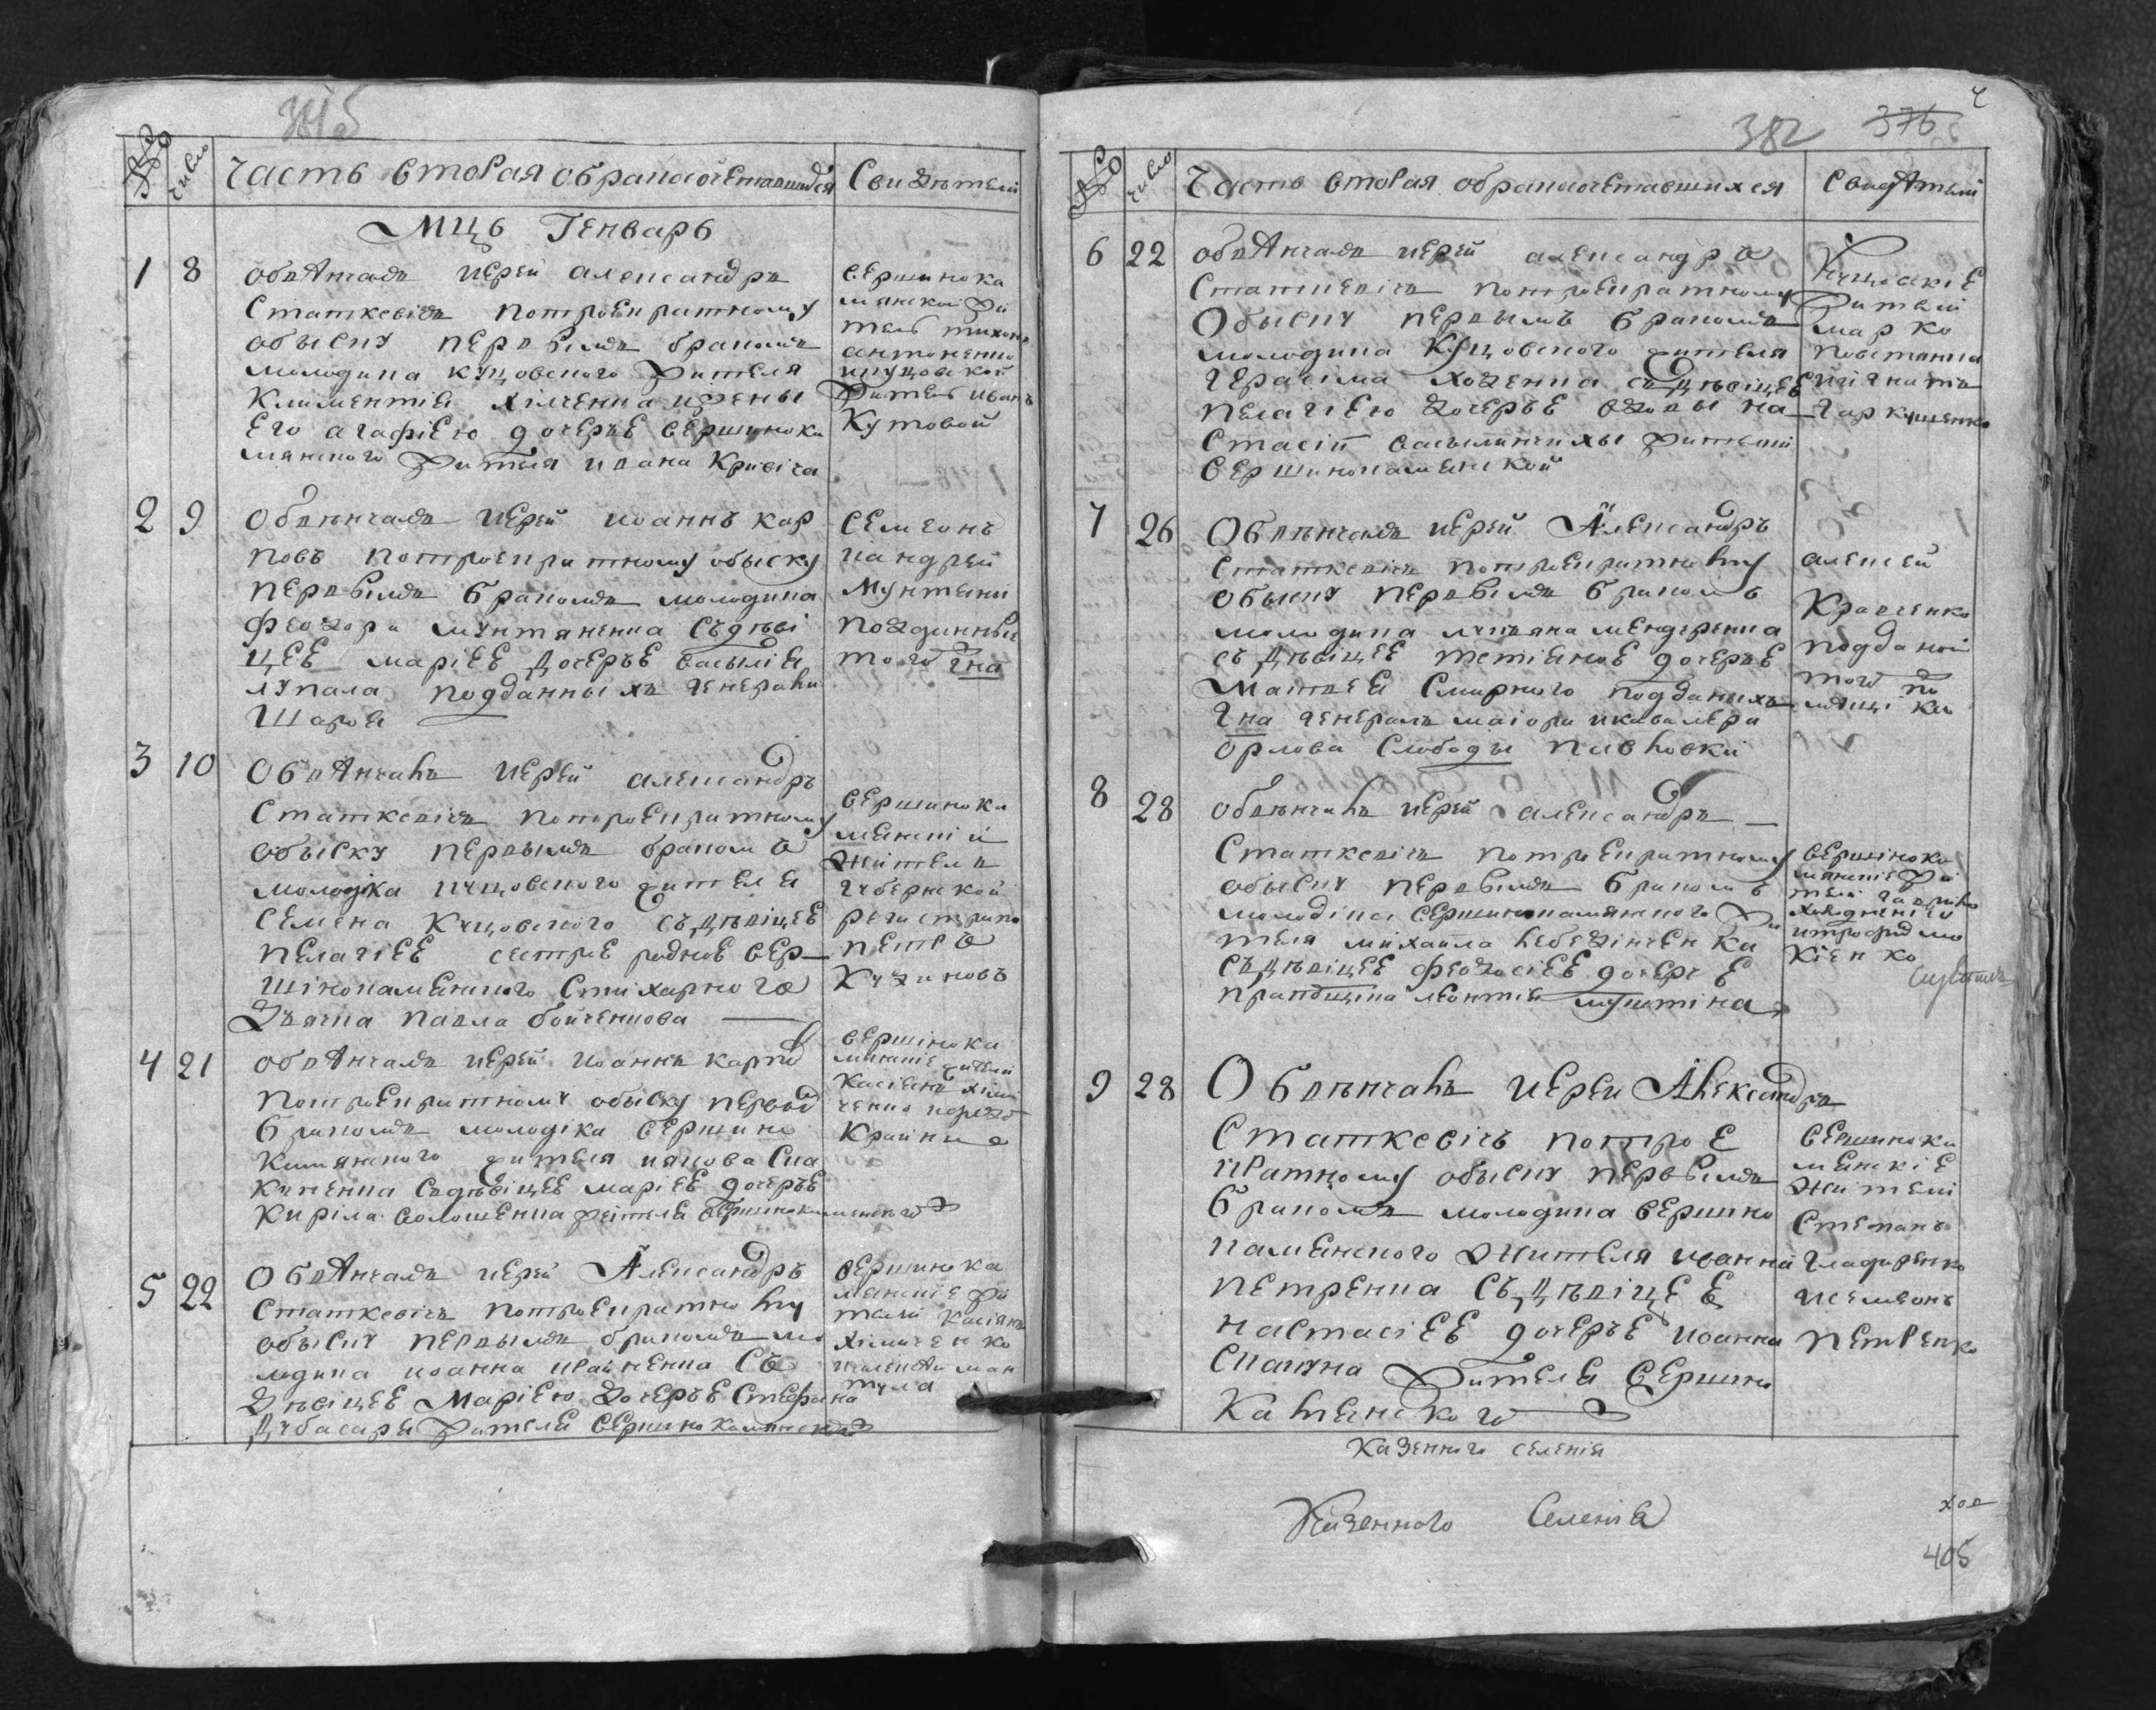 381б
№ число Часть вторая обракосочетавшихся Свидѣтели
Мцъ Генварь
1 8 обвѣнчалъ иерей александръ
Статкевичъ потроекратному
обыску первымъ бракомъ
молодика куцовского жителя
Климентия хилченка ижены
его агафиею дочерье вершинока
мянского жителя ивана Кривіча
вершинока
мянской жи
тель тихонъ
антоненко
икуцовской
житель иванъ
Кутовой
2 9 Обвѣнчалъ иерей иоаннъ кар
повъ потроекратному обыску
первымъ бракомъ молодика
феодора мунтяненка съдѣві
цее мариее дочерье василия
лупала подданныхъ генерала
Шарова
Семионъ
иандрей
Мунтяни
подданные
того Гна
3 10 Обвѣнчалъ иерей александръ
Статкевічъ потроекратному
обыску первымъ бракомъ
молодіка куцовского жителя
Семена Куцовского съдѣвіцее
пелагиее сестрие родное вер
шінокаменского Стихарного
Дьячка павла бойченкова
вершинока
менский
житель
губернской
регистраторъ
петръ
Кузиновъ
4 21 обвѣнчалъ иерей иоаннъ карпов
потроекратному обыску первым
бракомъ молодіка вершино
камянского жителя иякова Ска
куненка съдѣвіцее мариее дочерье
Киріла волошенка жителя вершинокаменского
вершінока
мянские жители
Касиянъ хіли
ченко
Крайни
5 22 Обвѣнчалъ иерей Александръ
Статкевічъ потроекратному
обыску первымъ бракомъ мо
лодика иоанна крайненка съ
Дѣвіцее Мариею дочерье Стефана
Дубасаря жителя вершинокамянского
вершинока
мянские жи
тели Касиянъ
хіличенко
ман
тула
382 376
№ число Часть вторая обракосочетавшихся Свидѣтели
6 22 обвѣнчалъ иерей александръ
Статкевічъ потроекратному
Обыску первымъ бракомъ
молодика Куцовского жителя
герасіма ходенка съдѣвіцее
пелагиею дочерье вдовы на
стасіи васылинчихы жителки
вершинокаменской
Куцовские
жители
марко
повстянка
игнатъ
гаркушенко
7 26 Обвѣнчалъ иерей Александръ
Статкевічъ потроекратному
обыску первымъ бракомъ
молодика лукьяна мендеренка
съдѣвіцее тетіяное дочерье
Матвея Смирного подданыхъ
Гна генералъ маіора икавалера
орлова Слободы павловки
алексей
Кравченко
подданой
того по
мѣщіка
8 28 обвѣнчалъ иерей александръ
Статкевічъ потроекратному
обыску первымъ бракомъ
молодіка вершинокамянского жи
теля михаила лебедінченка
съдѣвіцее феодосиее дочерье
прапощика леонтия мушкіна
вершіноко
мянские жи
тели гаврило
итрофим мо
кіенко
9 28 Обвѣнчалъ иереи Александръ
Статкевічъ потрое
кратному обыску первымъ
бракомъ молодика вершино
камянского жителя иоанна
петренка съдѣвіцее
настасиее дочерье иоанна
Скакуна жителя вершино
Каменского
вершинока
мянские
жители
Степанъ
Гладиренко
исемионъ
петренко
Казенного селения
Казенного Селения
405